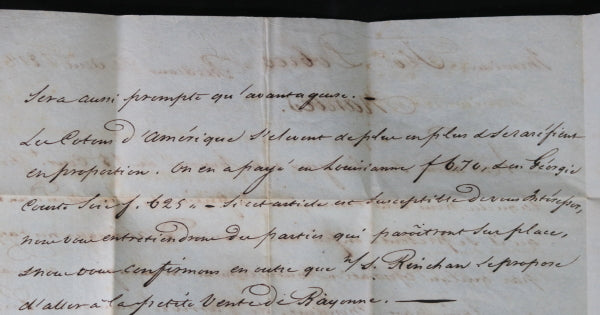 Sera aussi prompte qu'avantageuse. —
Les Cotons d'Amérique s'elevent de plus en plus & se raréfient
en proportion. On en a payé en Louisianne f 6,70, & en Géorgie
Courte Soie f. 625. — Si cet article est susceptible de vous Intéresser,
nous vous entretiendrons des parties qui paroîtront sur place,
& nous vous confirmons en outre que n/ S. Rinchan se propose
d'aller à la petite Vente de Bayonne. —